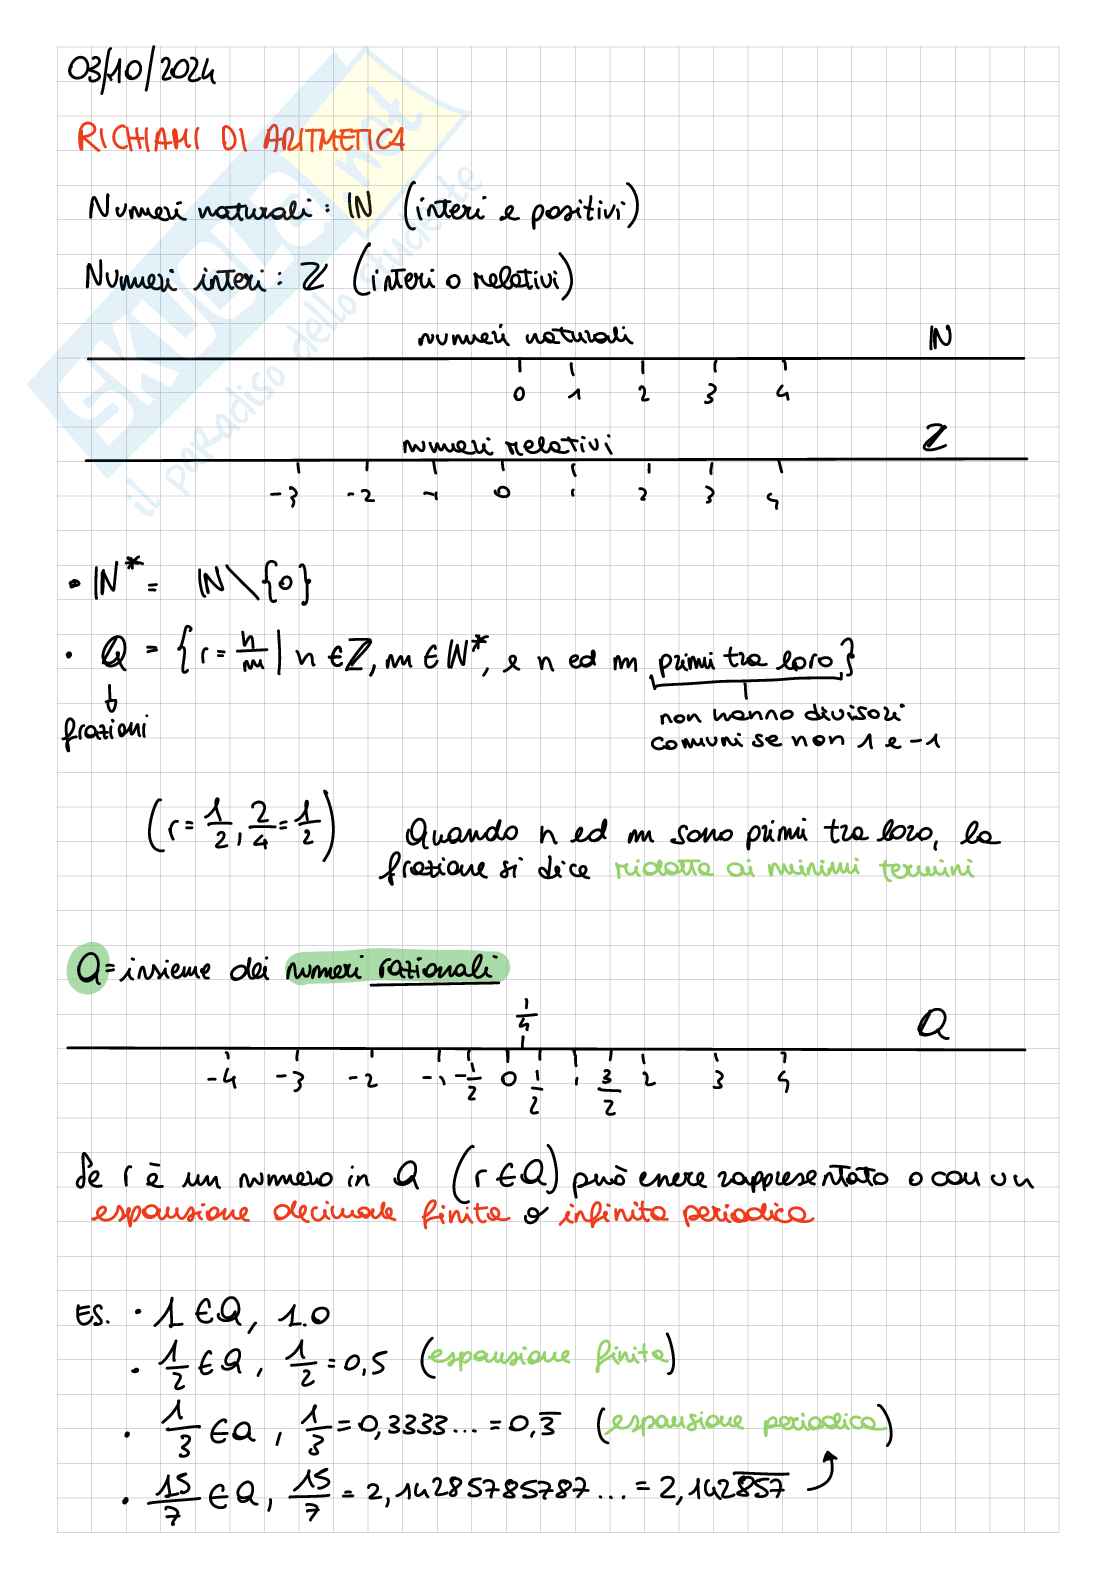 03/10/2024
RICHIAMI DI ARITMETICA
Numeri naturali: ℕ (interi e positivi)
Numeri interi: ℤ (interi o relativi)
numeri naturali ℕ
0 1 2 3 4
numeri relativi ℤ
-3 -2 -1 0 1 2 3 4
• ℕ* = ℕ \ {0}
• ℚ = {r = n/m | n ∈ ℤ, m ∈ ℕ*, e n ed m primi tra loro}
↓
frazioni
non hanno divisori
comuni se non 1 e -1
(r = 1/2, 2/4 = 1/2) Quando n ed m sono primi tra loro, la
frazione si dice ridotta ai minimi termini
Q = insieme dei numeri razionali
1/4 Q
-4 -3 -2 -1 -1/2 0 1/2 1 3/2 2 3 4
Se r è un numero in Q (r ∈ Q) può essere rappresentato o con un
espansione decimale finita o infinita periodica
ES. • 1 ∈ Q, 1.0
• 1/2 ∈ Q, 1/2 = 0,5 (espansione finita)
• 1/3 ∈ Q, 1/3 = 0,3333... = 0,3̅ (espansione periodica)
• 15/7 ∈ Q, 15/7 = 2,14285785787... = 2,1428̅5̅7̅
SKUOLA.net
il paradiso dello studente